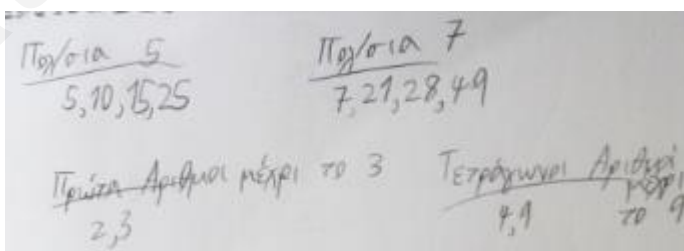 Πολ/σια 5
5,10,15,25
Πολ/σια 7
7,21,28,49
Πρώτοι Αριθμοί μέχρι το 3
2,3
Τετράγωνοι Αριθμοί μέχρι το 9
4,9